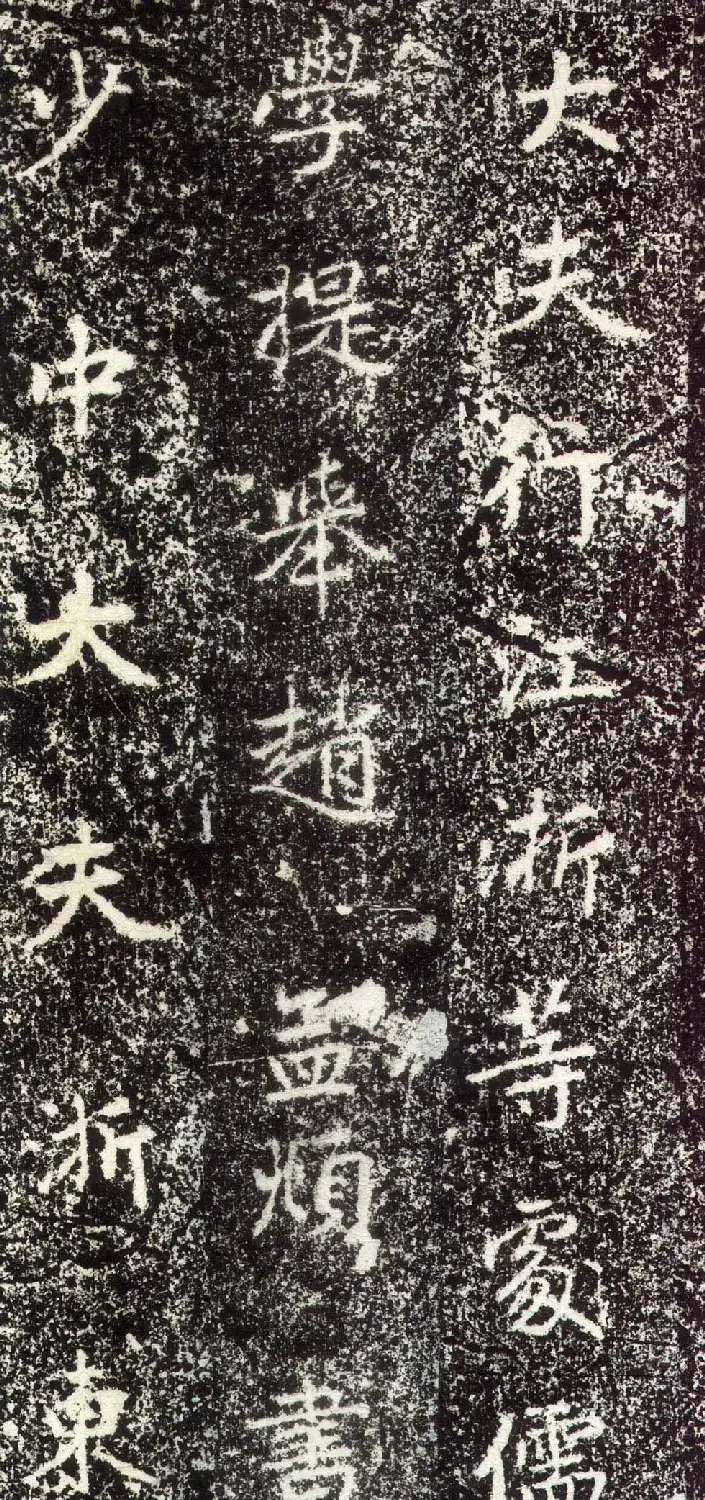 大夫行江浙等處儒
學提舉趙孟頫書
少中大夫浙東